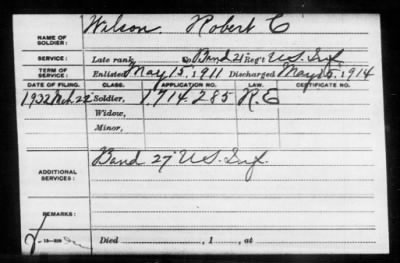 NAME OF SOLDIER: Wilson. Robert C
SERVICE: Late rank, Co Band 21 Reg't U.S. Inf
TERM OF SERVICE: Enlisted May 15, 1911 Discharged May 15, 1914
DATE OF FILING. CLASS. APPLICATION NO. LAW. CERTIFICATE NO.
1922 Mch. 22 Soldier, 1,714,285 R.E
Widow,
Minor,
Band 27 U.S. Inf.
ADDITIONAL SERVICES:
REMARKS:
Died , 1 , at